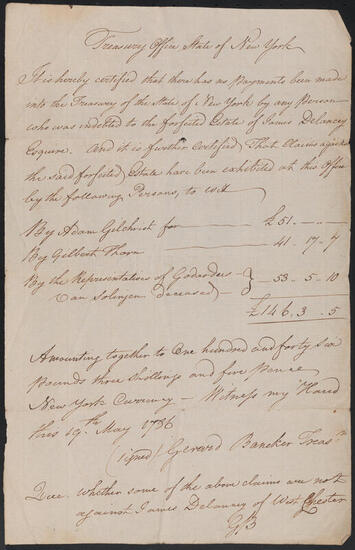 Treasury Office State of New York
It is hereby certified that there has no Payments been made
into the Treasury of the State of New York by any Person
who was indebted to the forfeited Estate of James Delancey
Esquire. And it is further Certified That Claims against
the said forfeited Estate have been exhibited at this Office
by the following Persons, to wit
By Adam Gilchrist for £51 - - -
By Gilbert Thorn 41 - 17 - 7
By the Representatives of
Van Solingen deceased } 53 - 5 - 10
£146. 3 - 5
Amounting together to One hundred and forty six
Pounds three Shillings and five Pence
New York Currency - Witness my Hand
this 19th. May 1786
(signed) Gerard Bancker Treasr.
Quee. whether some of the above claims are not
against James Delancey of West Chester
GB